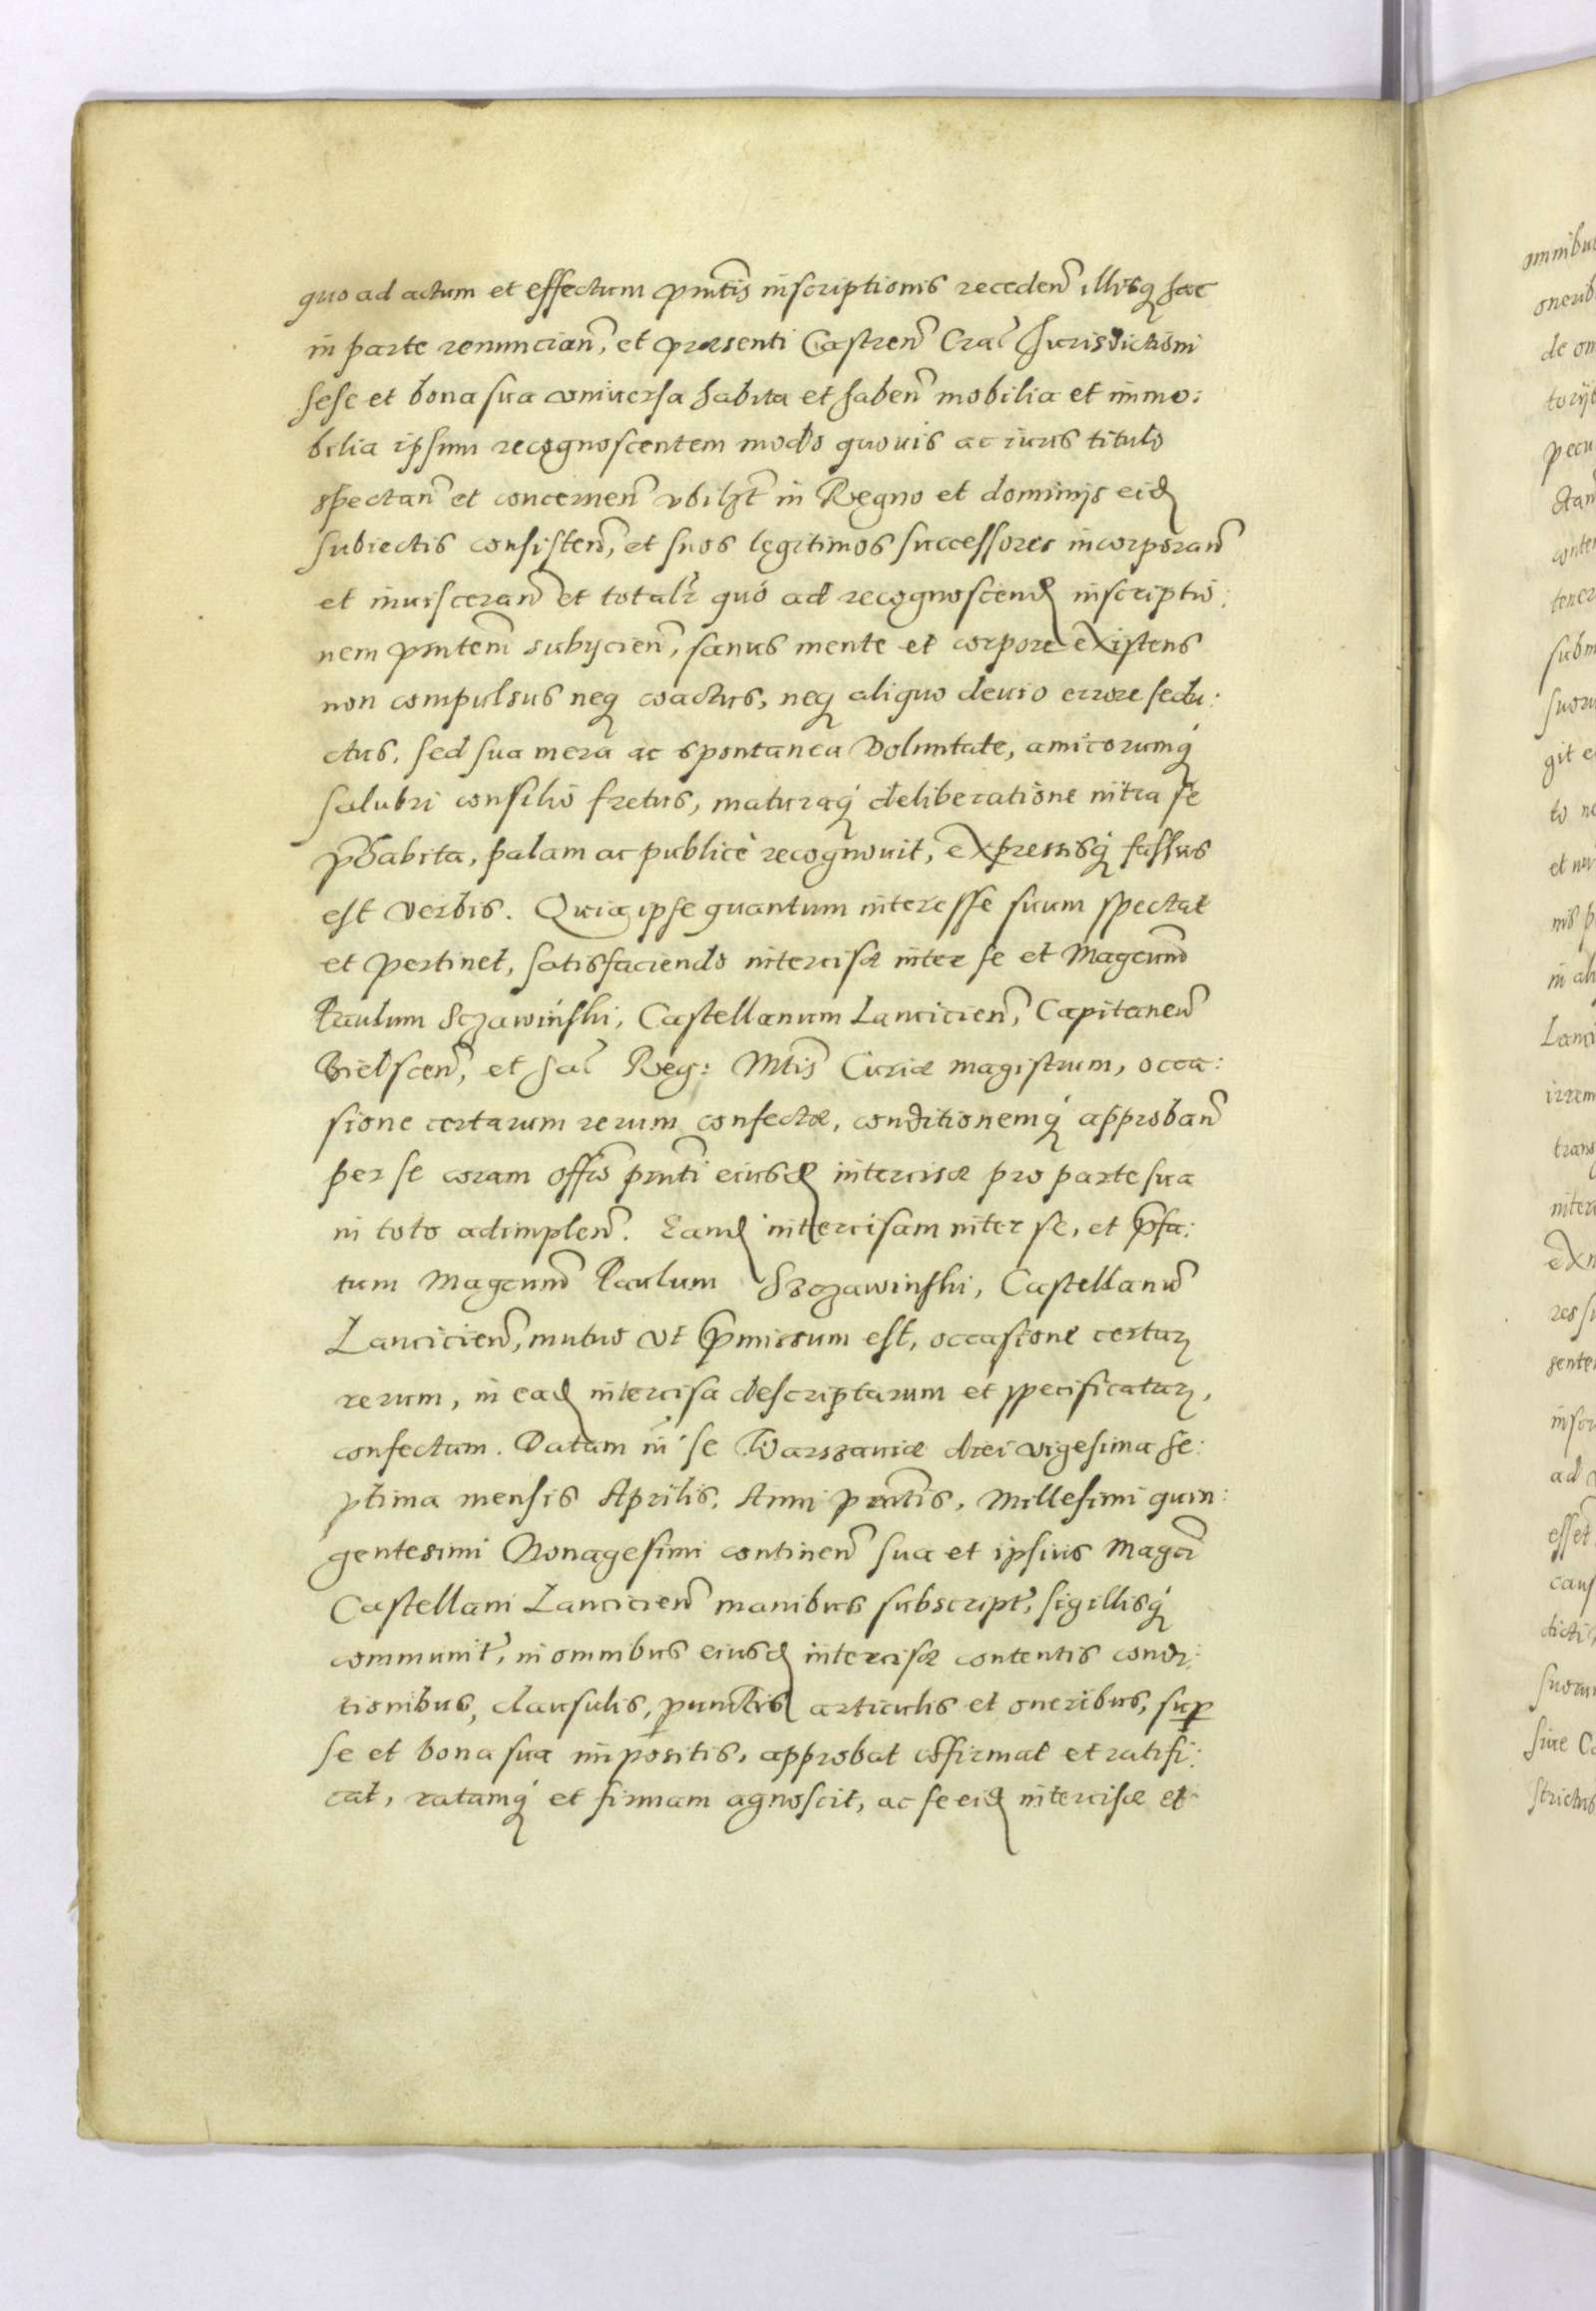 quo ad actum et effectum pñtis inscriptionis recedeñ illisq hac
in parte renuncian̄, et præsenti Castren̄ Crać Jurisdictioni
sese et bona sua vniuersa habita et haben̄ mobilia et immo:
bilia ipsum recognoscentem modo quouis ac iuris titulo
spectan̄ et concernen̄ vbilꝫt in Regno et dominijs eid
subiectis consisten̄, et suos legitimos successores incorporan̄
et inuisceran̄ et totalr̄ quó ad recognoscend inscriptio:
nem pñtem subijcien̄, sanus mente et corpore existens
non compulsus neq coactus, neq aliquo deuio errore sedu:
ctus, sed sua mera ac spontanea voluntate, amicorumq́
salubri consilio fretus, maturaq́ deliberatione intra se
p̄habita, palam ac publicè recognouit, expressisq́ fassus
est verbis. Quia ipse quantum interesse suum spectat
et pertinet, satisfaciendo intercisæ inter se et Magcum̄
Paulum Sczawiński, Castellanum Lancicien̄, Capitaneu̅
Bielscen̄, et Sac̄ Reg: Mtis̄ Curiæ magistrum, occa:
sione certarum rerum confectæ, conditionemq́ approban̄
per se coram offi̅o pñti eiusd intercisæ pro parte sua
in toto adimplen̄. Eand intercisam inter se, et p̄fa:
tum Magcum̄ Paulum Szczawinski, Castellanu̅
Lancicien̄, mutuo vt p̄missum est, occasione certarꝫ
rerum, in ead intercisa descriptarum et specificatarꝫ,
confectam. Datam in se Warszauiæ diei vigesima se:
ptima mensis Aprilis, Anni pñtis, Millesimi quin:
gentesimi Nonagesimi continen̄ sua et ipsius Magci̅
Castellani Lancicien̄ manibus subscript̄, sigillisq́
communit̄, in omnibus eiusd intercisæ contentis condi:
tionibus, clausulis, punctis articulis et oneribus, sup̱
se et bona sua impositis, approbat co̅firmat et ratifi:
cat, ratamq́ et firmam agnoscit, ac se eid intercisæ et
omnibu
onerib
de om
torijs
pecu
ctan
conte
tener
subm
suoru
git e
to
et
nis p
in al
Lanci
irrem
trans
inter
ex
res su
sente
inscr
ad
esset
caus
dicti
suorum
siue C
strictus